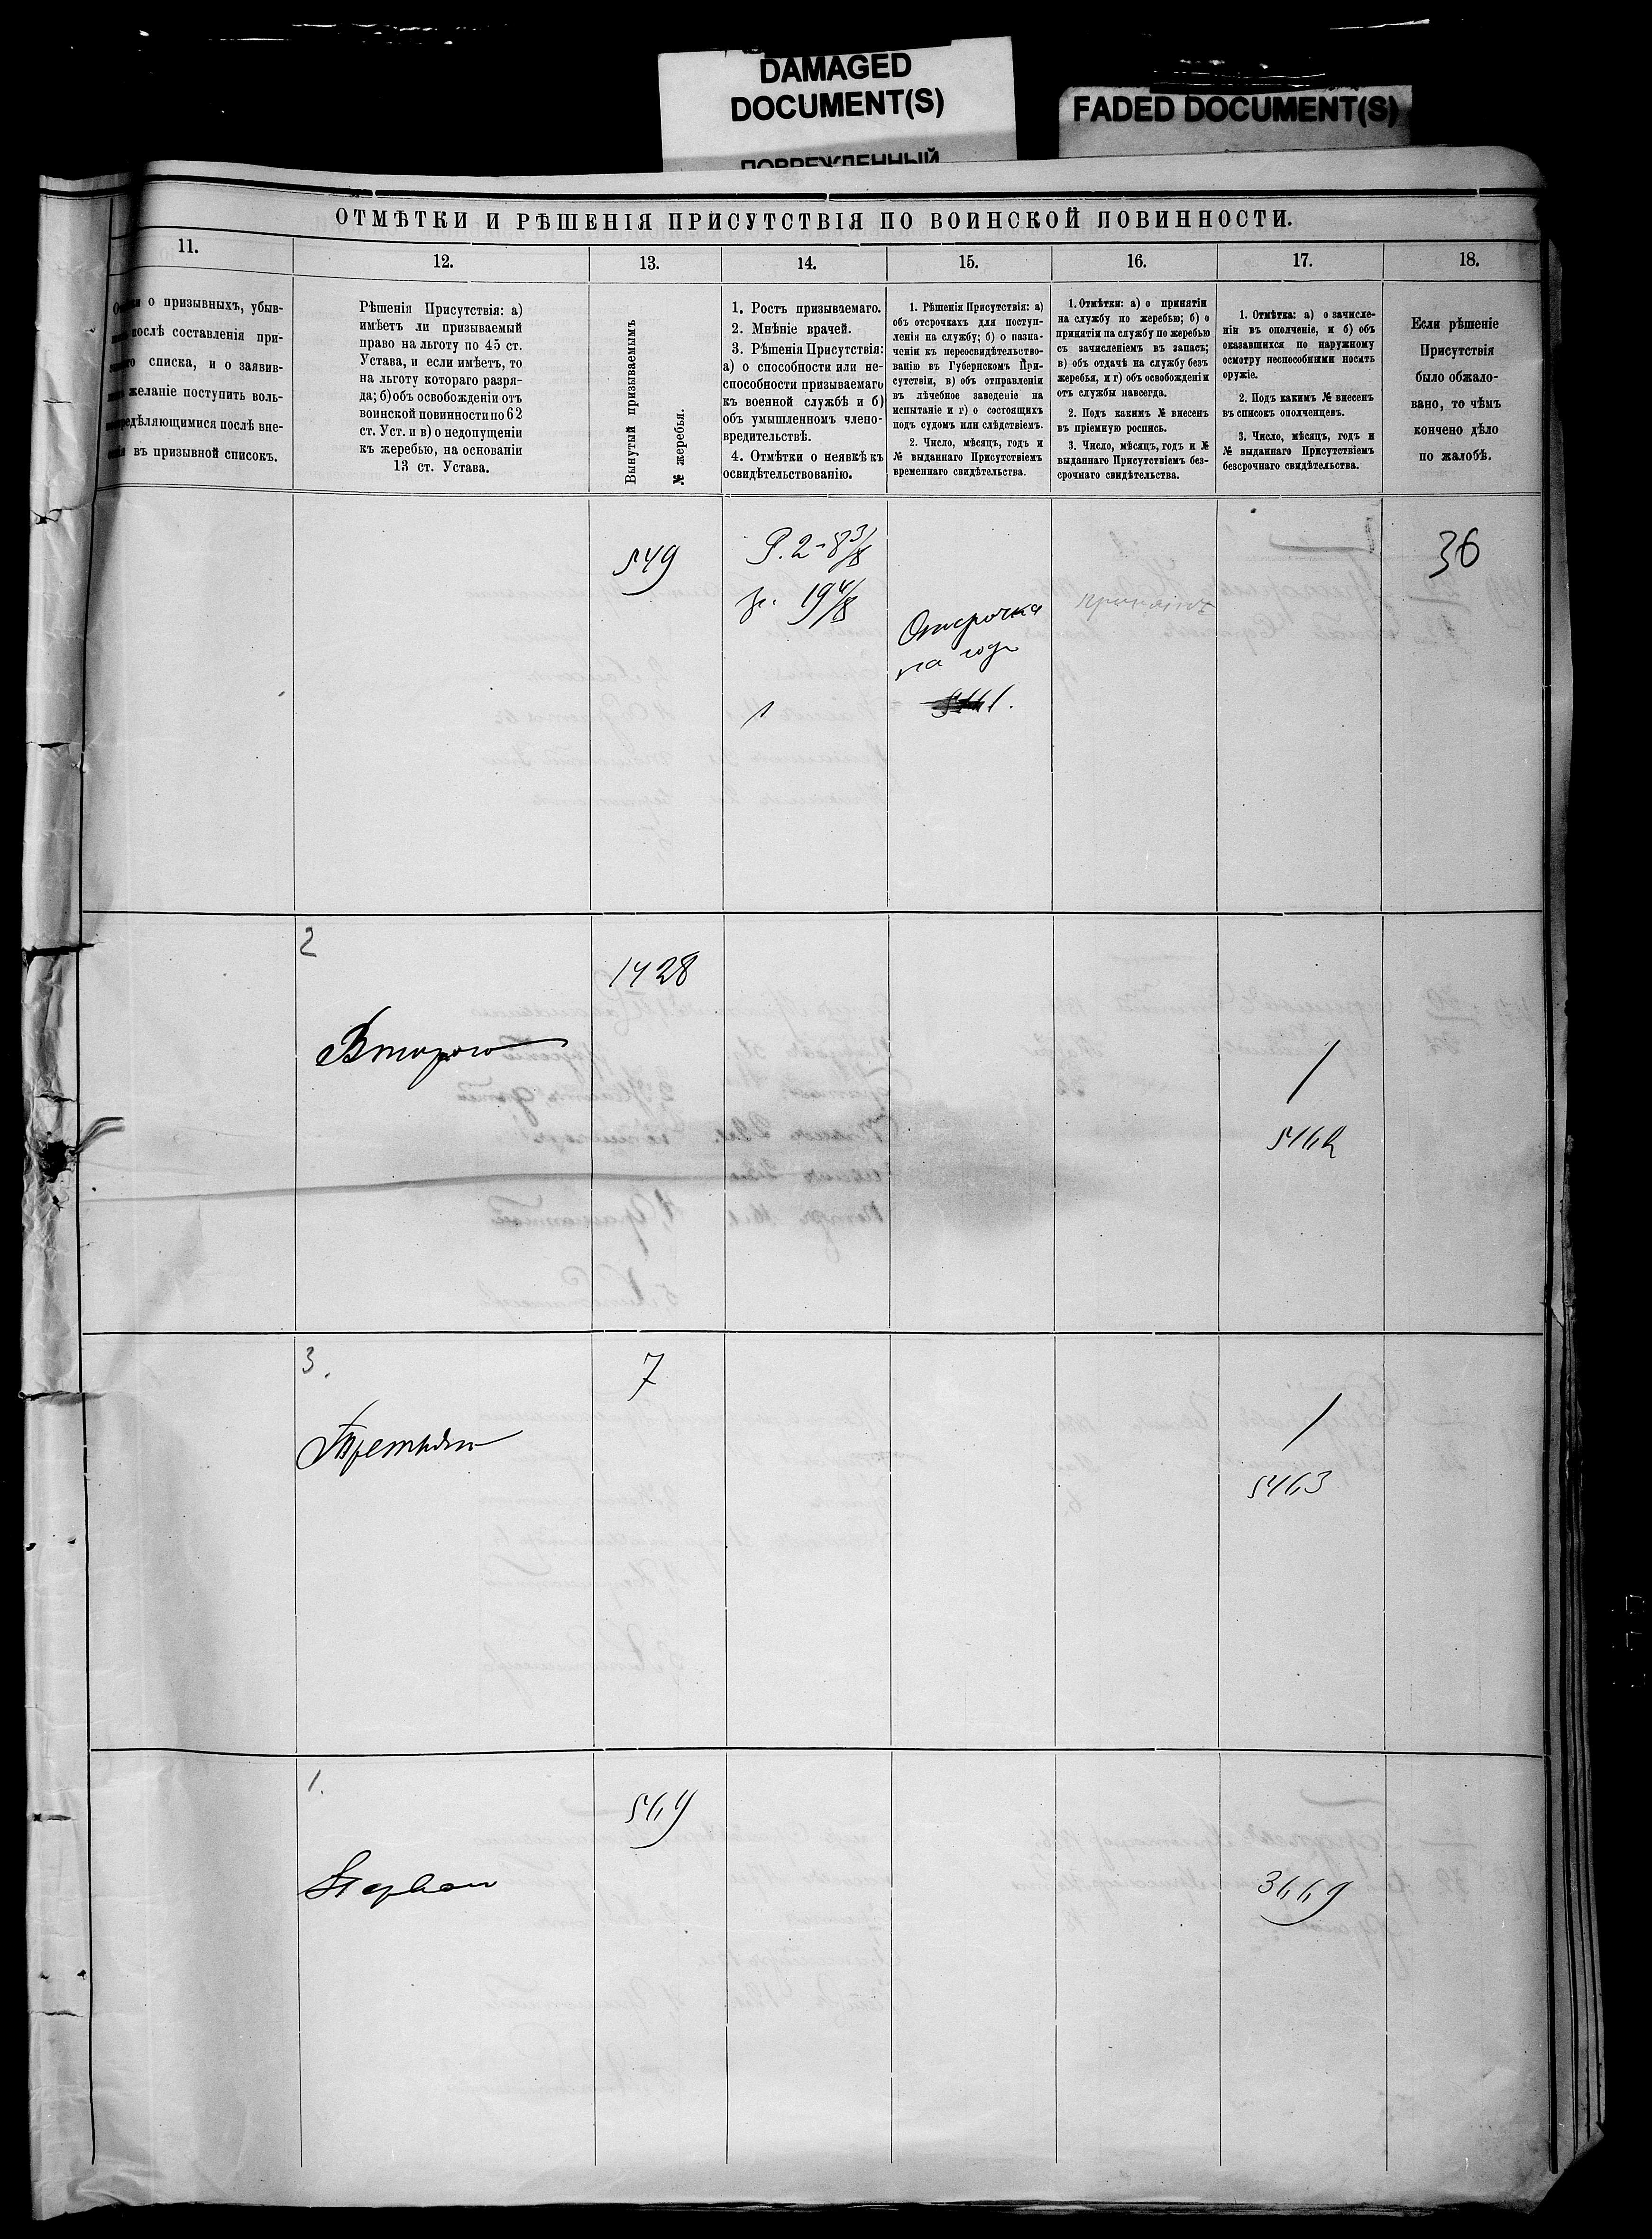 DAMAGED
DOCUMENT(S)
ПОВРЕЖДЕННЫЙ
FADED DOCUMENT(S)
ОТМѢТКИ И РѢШЕНІЯ ПРИСУТСТВІЯ ПО ВОИНСКОЙ ПОВИННОСТИ.
11.
12.
13.
14.
15.
16.
17.
18.
о призывныхъ, убыв-
послѣ составленія при-
списка, и о заявив-
желаніе поступить воль-
въ призывной списокъ.
Рѣшенія Присутствія: а)
имѣетъ ли призываемый
право на льготу по 45 ст.
Устава, и если имѣетъ, то
на льготу котораго разря-
да; б) объ освобожденіи отъ
воинской повинности по 62
ст. Уст. и в) о недопущеніи
къ жеребью, на основаніи
13 ст. Устава.
Вынутый призываемымъ
№ жеребья.
1. Ростъ призываемаго.
2. Мнѣніе врачей.
3. Рѣшенія Присутствія:
а) о способности или не-
способности призываемаго
къ военной службѣ и б)
объ умышленномъ члено-
вредительствѣ.
4. Отмѣтки о неявкѣ къ
освидѣтельствованію.
1. Рѣшенія Присутствія: а)
объ отсрочкахъ для поступ-
ленія на службу; б) о назна-
ченіи къ переосвидѣтельство-
ванію въ Губернскомъ При-
сутствіи, в) объ отправленіи
въ лѣчебное заведеніе на
испытаніе и г) о состоящихъ
подъ судомъ или слѣдствіемъ.
2. Число, мѣсяцъ, годъ и
№ выданнаго Присутствіемъ
временнаго свидѣтельства.
1. Отмѣтки: а) о принятіи
на службу по жеребью; б) о
принятіи на службу по жеребью
съ зачисленіемъ въ запасъ;
в) объ отдачѣ на службу безъ
жеребья, и г) объ освобожденіи
отъ службы навсегда.
2. Подъ какимъ № внесенъ
въ пріемную роспись.
3. Число, мѣсяцъ, годъ и №
выданнаго Присутствіемъ без-
срочнаго свидѣтельства.
1. Отмѣтка: а) о зачисле-
ніи въ ополченіе, и б) объ
оказавшихся по наружному
осмотру неспособными носить
оружіе.
2. Подъ какимъ № внесенъ
въ списокъ ополченцевъ.
3. Число, мѣсяцъ, годъ и
№ выданнаго Присутствіемъ
безсрочнаго свидѣтельства.
Если рѣшеніе
Присутствія
было обжало-
вано, то чѣмъ
кончено дѣло
по жалобѣ.
549
Р. 2-8 3/8
г. 19 4/8
Отсрочка
на годъ
36
2
Второго
1428
5462
3.
Третьяго
7
5463
1.
Перваго
564
3669